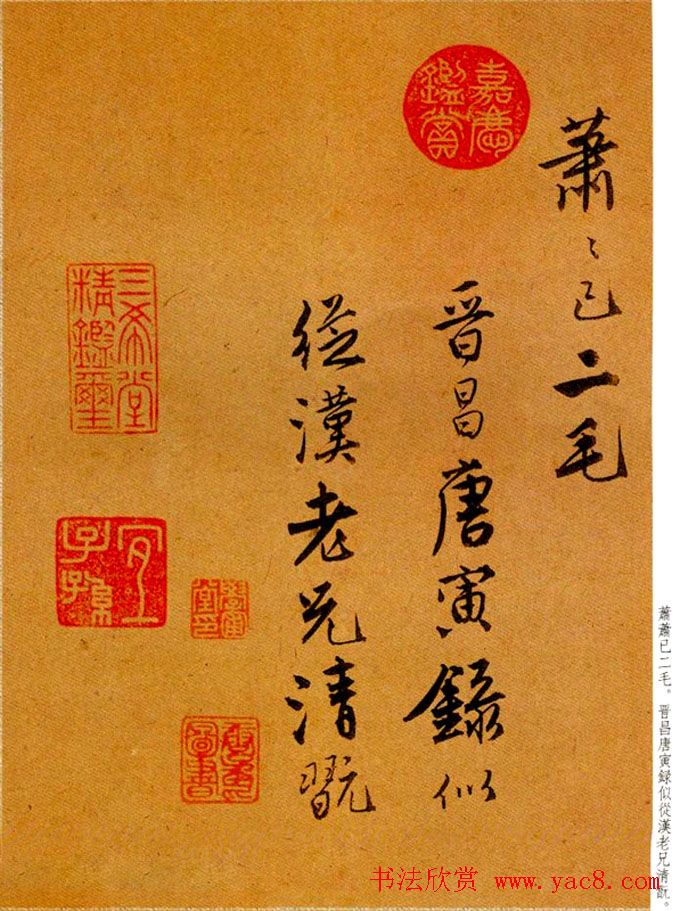 蕭〻已二毛
晉昌唐寅録似
從漢老兄清翫
嘉慶鑑賞
三希堂精鑑璽
宜子孫
蕭蕭已二毛。晉昌唐寅録似從漢老兄清翫。
书法欣赏 www.yac8.com